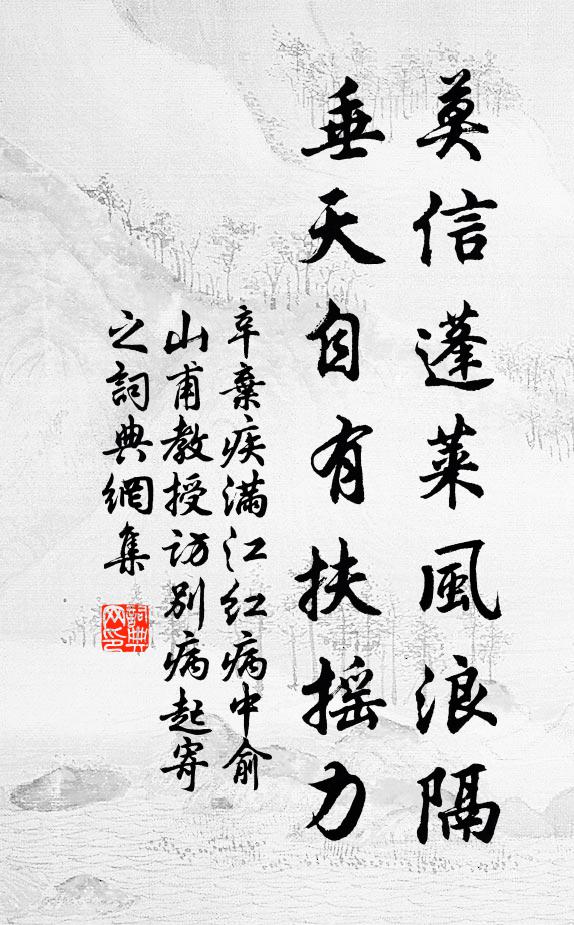 莫信蓬萊風浪隔
垂天自有扶搖力
辛棄疾滿江紅病中俞
山甫教授訪別病起寄
之詞典網集
詞典
网印